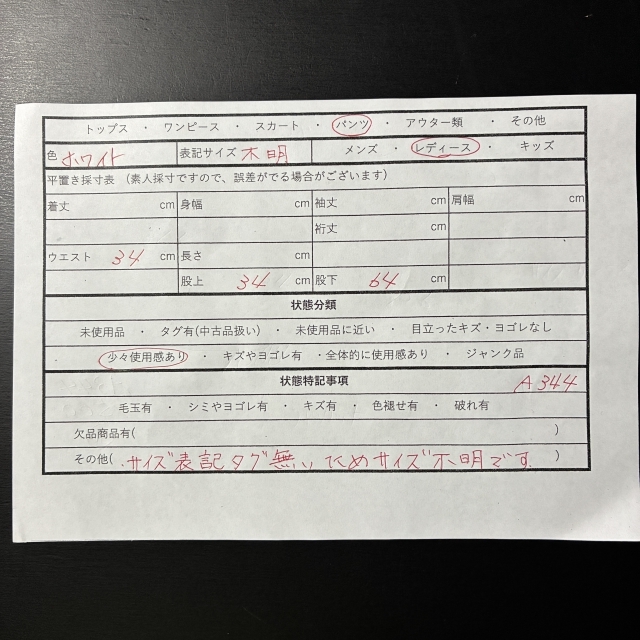 トップス ・ ワンピース ・ スカート ・ パンツ ・ アウター類 ・ その他
色 ホワイト 表記サイズ 不明 メンズ ・ レディース ・ キッズ
平置き採寸表 (素人採寸ですので、誤差がでる場合がございます)
着丈 cm 身幅 cm 袖丈 cm 肩幅 cm
裄丈 cm
ウエスト 34 cm 長さ cm
股上 34 cm 股下 64 cm
状態分類
未使用品 ・ タグ有(中古品扱い) ・ 未使用品に近い ・ 目立ったキズ・ヨゴレなし
少々使用感あり ・ キズやヨゴレ有 ・全体的に使用感あり ・ ジャンク品
状態特記事項 A344
毛玉有 ・ シミやヨゴレ有 ・ キズ有 ・ 色褪せ有 ・ 破れ有
欠品商品有( )
その他( サイズ表記タグ無いためサイズ不明です )